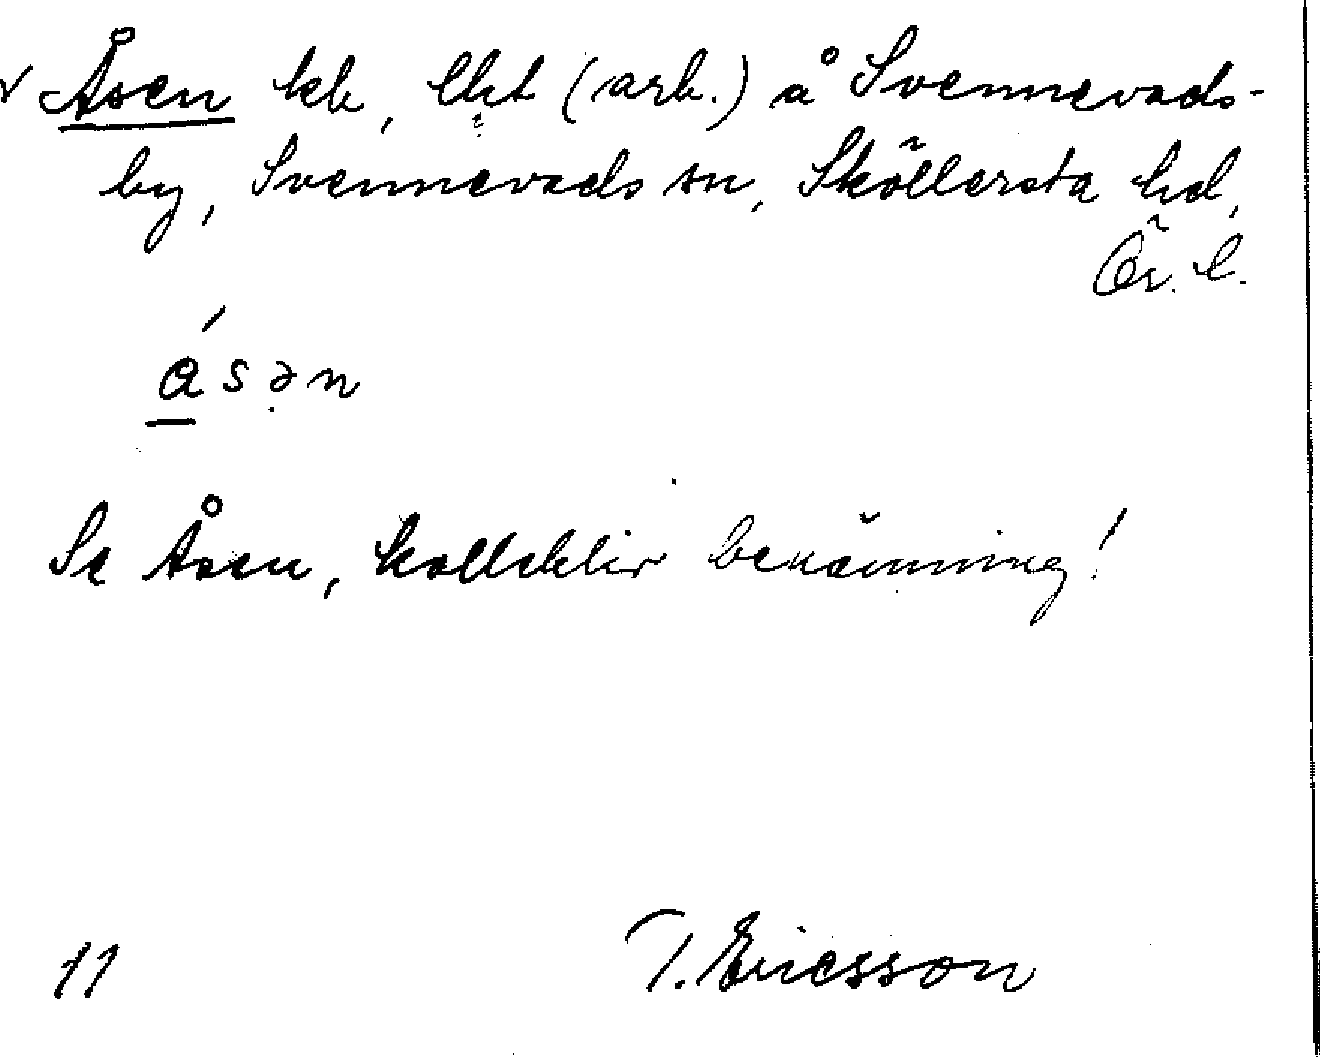 Åsen kb, lht (arb.) å Svennevads-
by, Svennevads sn, Sköllersta hd,
Ör. l.
ásən
Se Åsen, kollektiv benämning!
11 T. Ericsson